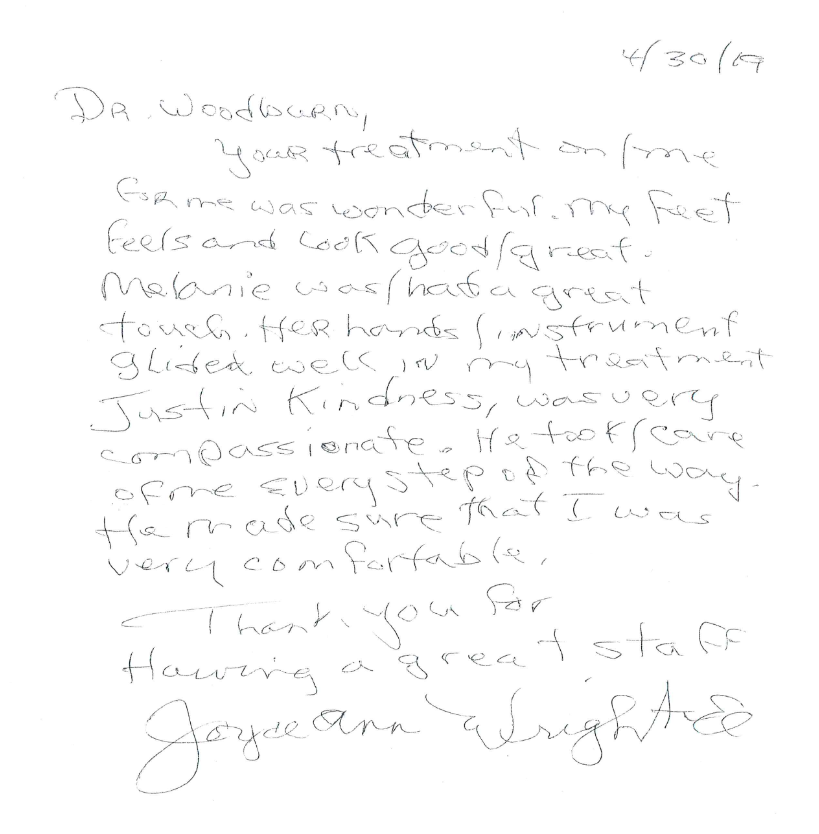 4/30/19
Dr. Woodburn,
Your treatment on/me
for me was wonderful. My feet
feels and look good/great.
Melanie was/had a great
touch. Her hands/instrument
glided well in my treatment
Justin Kindness, was very
compassionate. He took/care
of me every step of the way.
He made sure that I was
very comfortable.
Thank you for
Having a great staff
Joyce Ann Wright